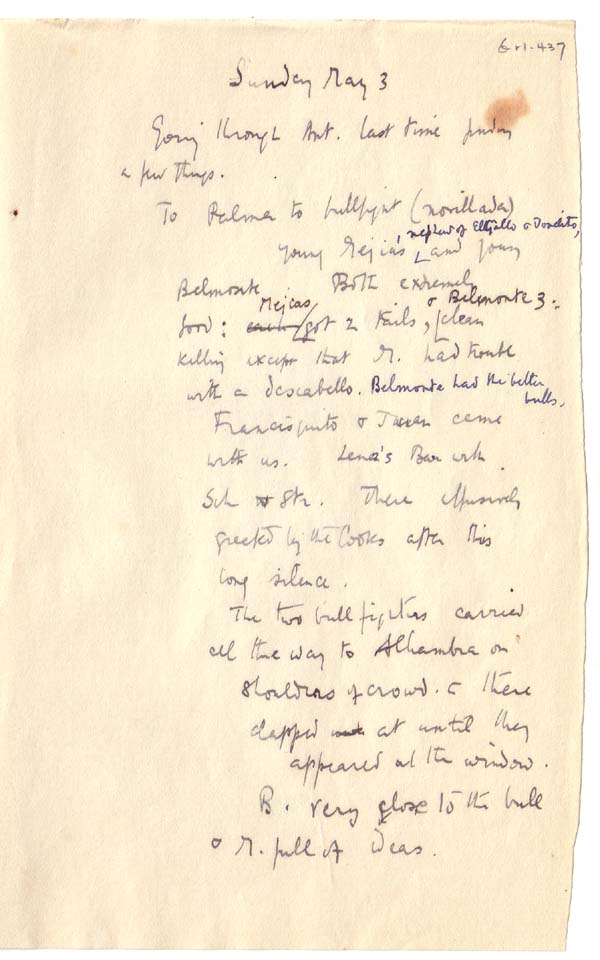 6-1-437
Sunday May 3
Going through Ant. last time finding
a few things.
To Palma to bullfight (novillada)
nephew of El Gallo & Joselito,
young Mejias, and young
Belmonte Both extremely
Mejias & Belmonte 3.
good: each got 2 tails, clean
killing except that M. had trouble
with a descabello. Belmonte had the better
bulls.
Francisquito & Juan came
with us. Lena's Bar with
Sch & Str. There effusively
greeted by the Cooks after this
long silence.
The two bull fighters carried
all the way to Alhambra on
shoulders of crowd. & there
clapped at until they
appeared at the window.
B. very close to the bull
& M. full of ideas.